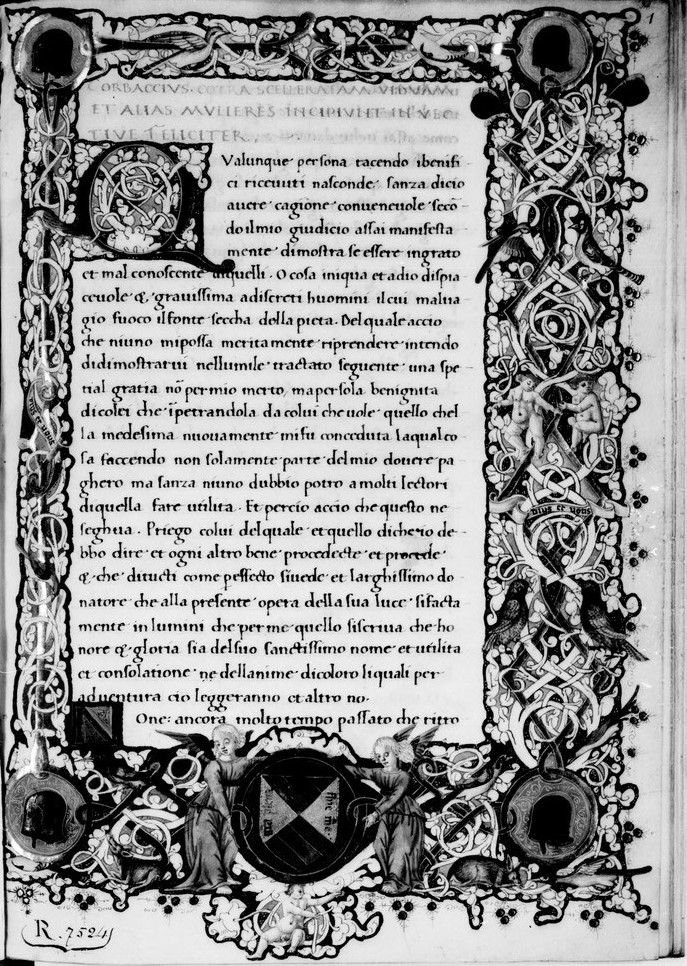 1
CORBACCIVS. COTRA SCELLERATAM VIDVAM
ET ALIAS MVLIERES INCIPIVNT
TIVE FELICITER.
Qualunque persona tacendo ibenifi
ci ricevuti nasconde sanza dicio
avere cagione convenevole seco
do ilmio giudicio assai manifesta
mente dimostra se essere ingrato
et mal conoscente diquelli. O cosa iniqua et adio dispia
cevole & gravissima adiscreti huomini il cui malva
gio fuoco ilfonte seccha della pieta. Del quale accio
che niuno mipossa meritamente riprendere intendo
didimostrarvi nellumile tractato seguente una spe
tial gratia nō per mio merto, ma per sola benignita
dicolei che ipetrandola da colui che vole quello chel
la medesima nuovamente mi fu conceduta laqual co
sa faccendo non solamente parte del mio dovere pa
ghero ma sanza niuno dubbio potro a molti lectori
diquella fare utilita. Et percio accio che questo ne
seghua. Priego colui del quale et quello dicheio de
bbo dire et ogni altro bene procedecte et procede
& che ditucti come peffecto sivede et larghissimo do
natore che alla presente opera della sua luce sifacta
mente in lumini che per me quello siscriva che ho
nore & gloria sia del suo sanctissimo nome et utilita
et consolatione ne dellanime dicoloro liquali per
adventura cio leggeranno et altro no.
None ancora molto tempo passato che ritro
R. 7524